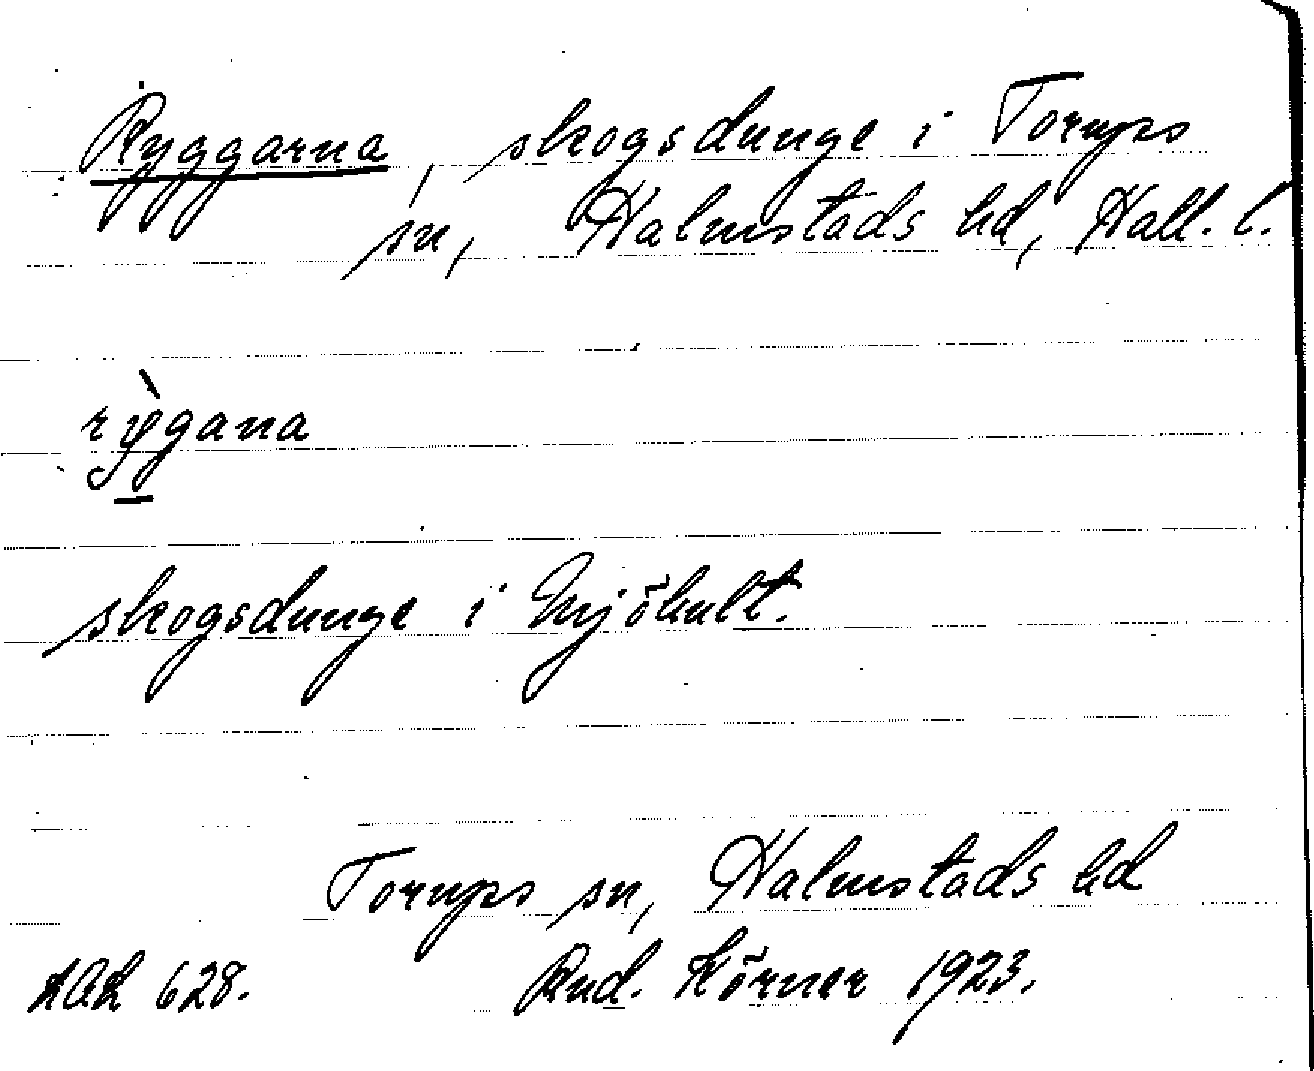 Ryggarna, skogsdunge i Torups
sn, Halmstads hd, Hall. l.
rỳgana
skogsdunge i Mjöhult.
Torups sn, Halmstads hd
628. Rud. Körner 1923.